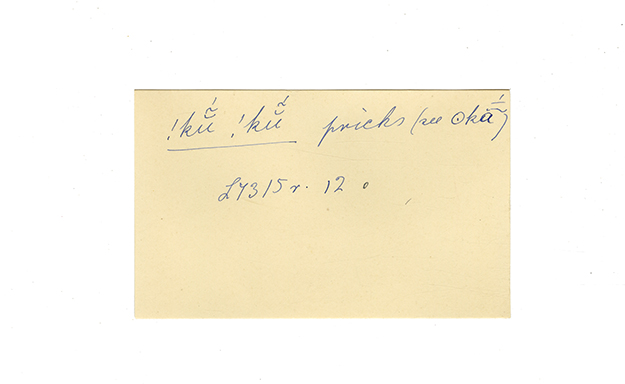 !kṹ̆ !kṹ̆ pricks (see ʘkã́)
L7315r. 12.